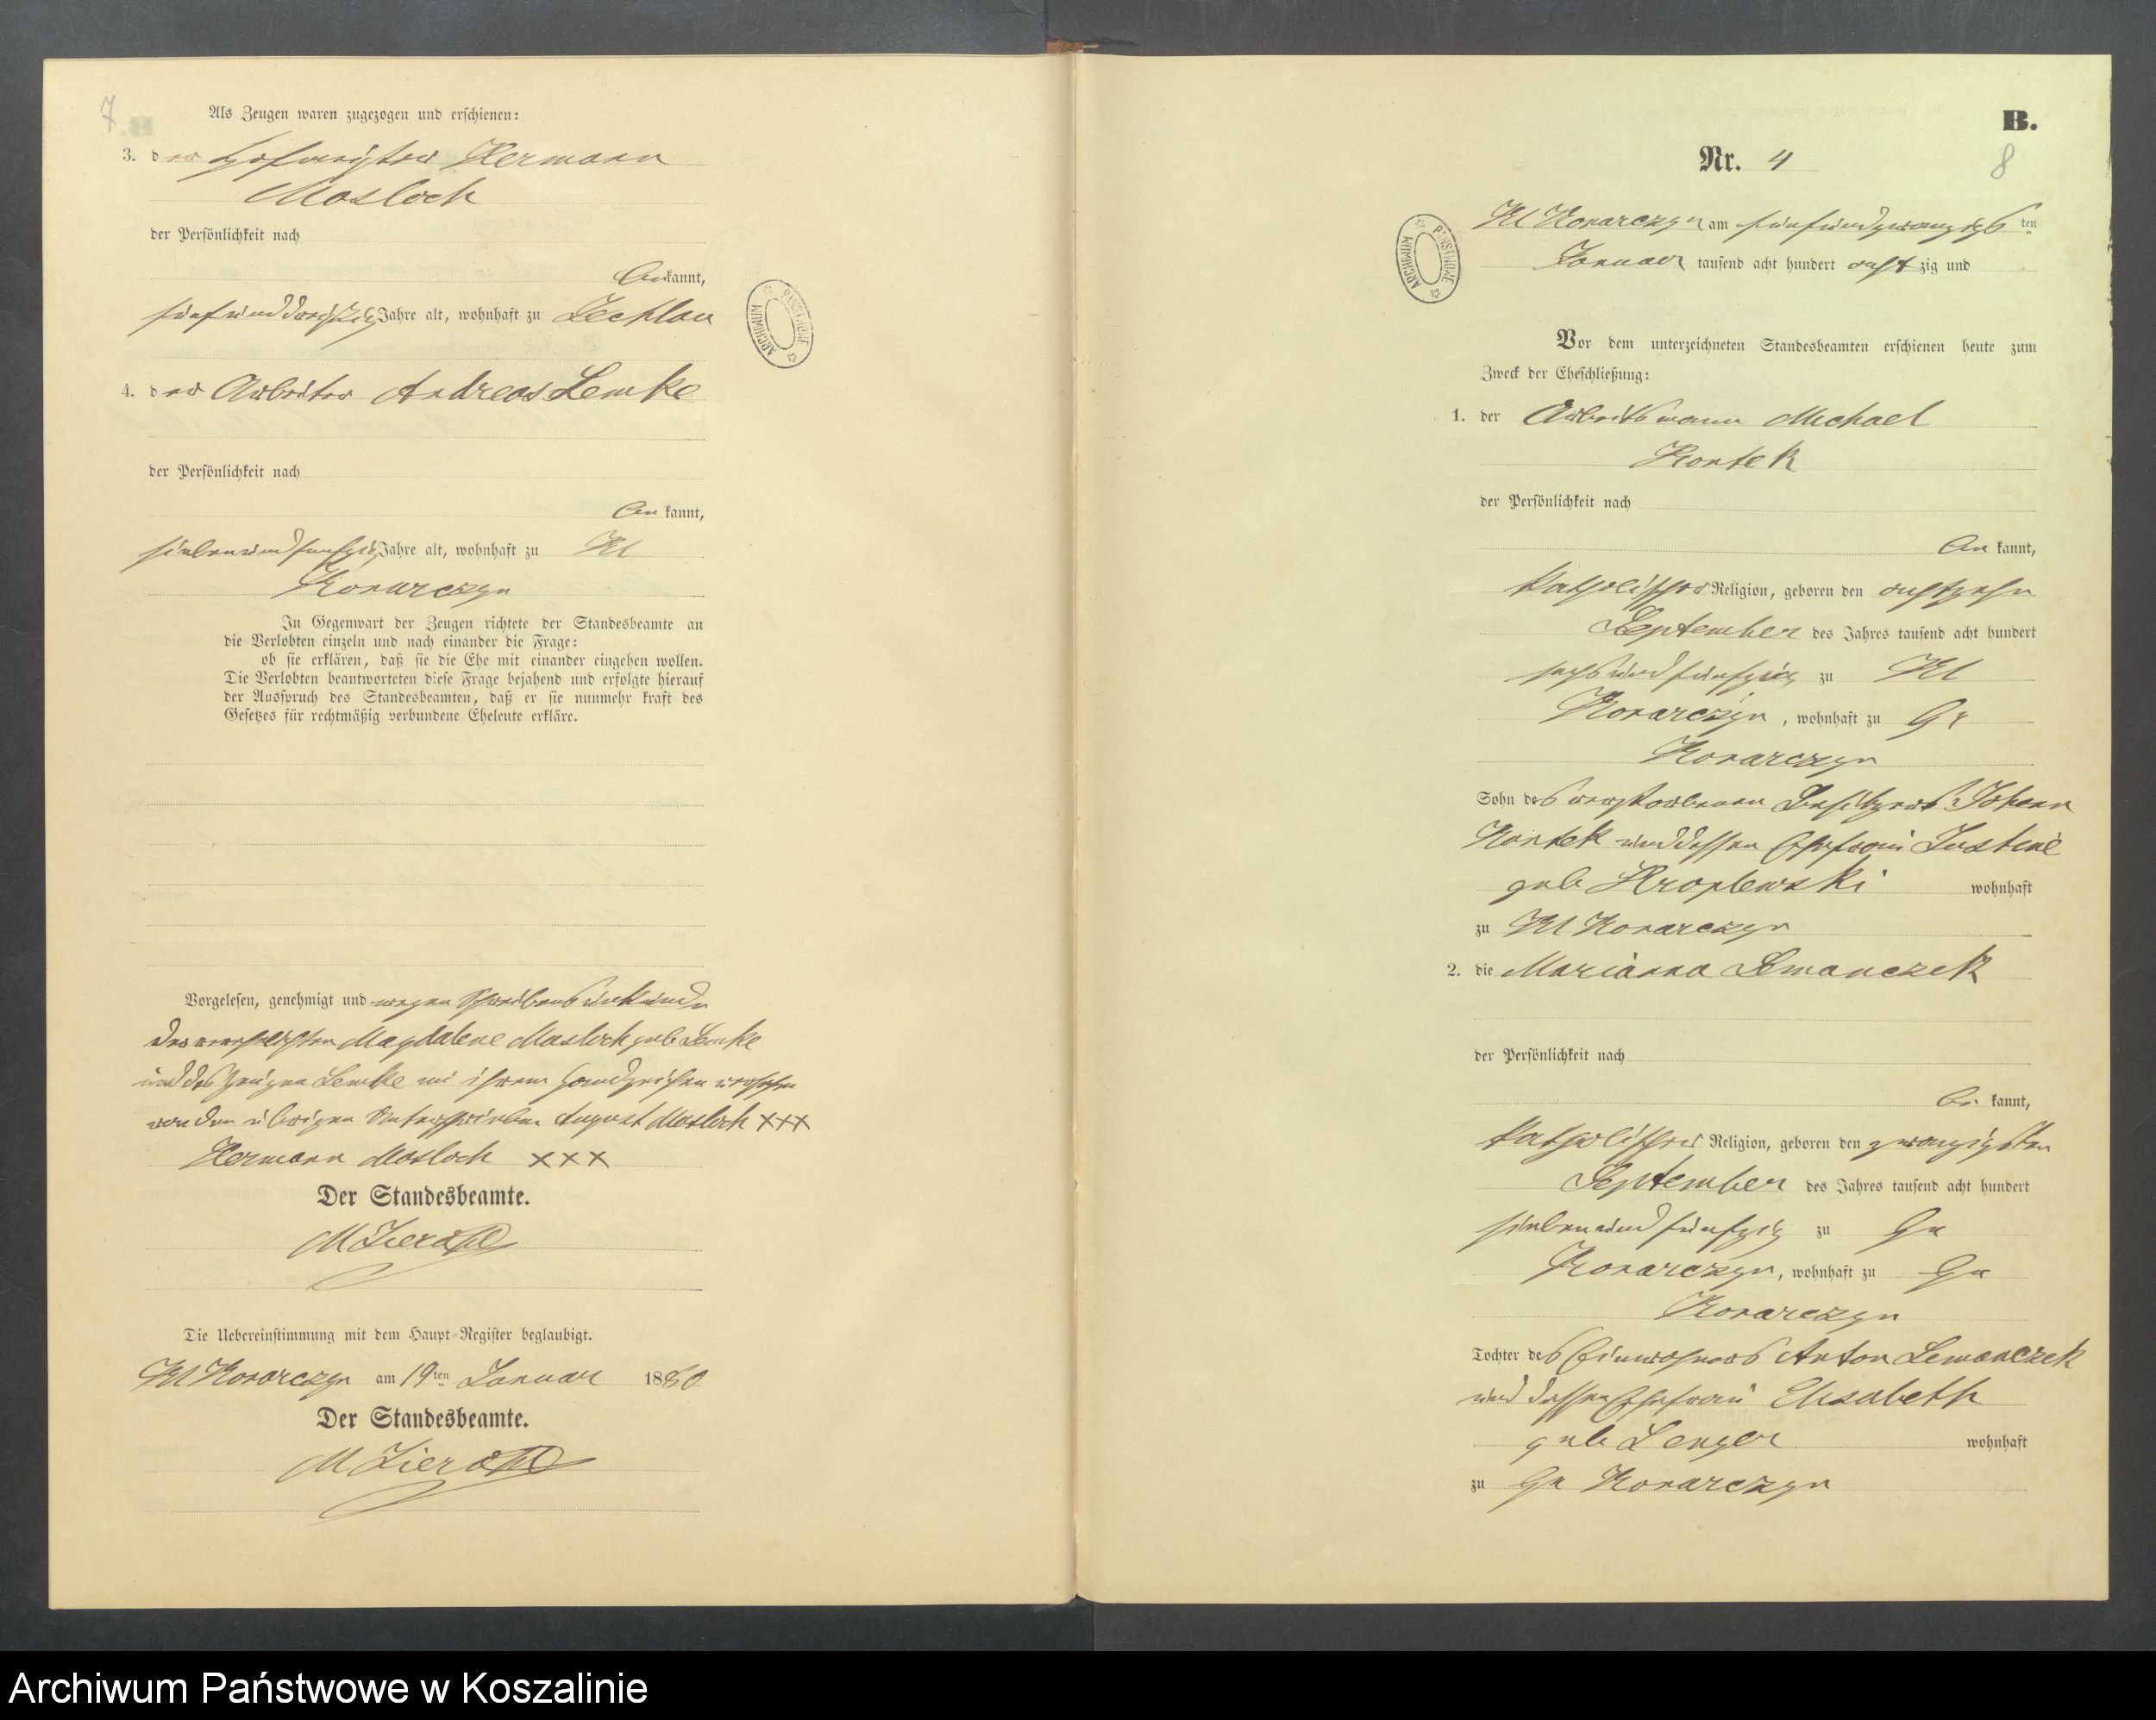 7
Als Zeugen waren zugezogen und erschienen:
3. der Hofmeister Hermann
Masloch
der Persönlichkeit nach
bekannt,
fünfunddreißig Jahre alt, wohnhaft zu Zechlau
4. der Arbeiter Andreas Lemke
der Persönlichkeit nach
bekannt,
siebenundfunfzig Jahre alt, wohnhaft zu Kl
Konarczyn
In Gegenwart der Zeugen richtete der Standesbeamte an
die Verlobten einzeln und nach einander die Frage:
ob sie erklären, daß sie die Ehe mit einander eingehen wollen.
Die Verlobten beantworteten diese Frage bejahend und erfolgte hierauf
der Ausspruch des Standesbeamten, daß er sie nunmehr kraft des
Gesetzes für rechtmäßig verbundene Eheleute erkläre.
Vorgelesen, genehmigt und wegen Schreibensunkunde
der verehelichten Magdalene Masloch geb Lemke
und des Zeugen Lemke mit ihrem Handzeichen versehen
von den übrigen unterschrieben August Masloch XXX
Hermann Masloch XXX
Der Standesbeamte.
Die Uebereinstimmung mit dem Haupt-Register beglaubigt.
Kl Konarczyn am 19ten Januar 1880
Der Standesbeamte.
B.
8
Nr. 4
Kl Konarczyn am fünfundzwanzigsten
Januar tausend acht hundert achtzig und
Vor dem unterzeichneten Standesbeamten erschienen heute zum
Zweck der Eheschließung:
1. der Arbeitsmann Michael
Kortek
der Persönlichkeit nach
bekannt,
katholischer Religion, geboren den achtzehn
September des Jahres tausend acht hundert
sechsundfünfzig zu Kl
Konarczyn, wohnhaft zu Gr
Konarczyn
Sohn des verstorbenen Besitzers Johann
Kortek und dessen Ehefrau Justine
geb Kroplewski wohnhaft
zu Kl Konarczyn
2. die Marianna Lemanczek
der Persönlichkeit nach
bekannt,
katholischer Religion, geboren den zwanzigsten
September des Jahres tausend acht hundert
siebenundfünfzig zu Gr
Konarczyn, wohnhaft zu Gr
Konarczyn
Tochter des Einwohners Anton Lemanczek
und dessen Ehefrau Elisabeth
geb Lenger wohnhaft
zu Gr Konarczyn
Archiwum Państwowe w Koszalinie